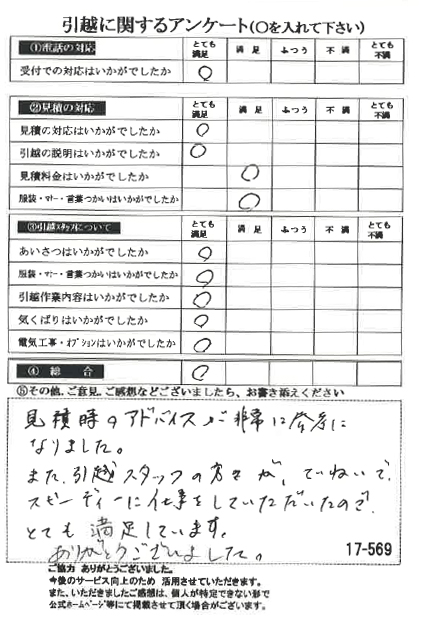 引越に関するアンケート(〇を入れて下さい)
①電話の対応 とても満足 満足 ふつう 不満 とても不満
受付での対応はいかがでしたか 〇
②見積の対応 とても満足 満足 ふつう 不満 とても不満
見積の対応はいかがでしたか 〇
引越の説明はいかがでしたか 〇
見積料金はいかがでしたか 〇
服装・マナー・言葉つかいはいかがでしたか 〇
③引越スタッフについて とても満足 満足 ふつう 不満 とても不満
あいさつはいかがでしたか 〇
服装・マナー・言葉つかいはいかがでしたか 〇
引越作業内容はいかがでしたか 〇
気くばりはいかがでしたか 〇
電気工事・オプションはいかがでしたか 〇
④ 総 合 〇
⑤その他、ご意見、ご感想などございましたら、お書き添えください
見積時のアドバイスが非常に参考に
なりました。
また、引越スタッフの方々が、ていねいで
スピーディーに仕事をしていただいたので
とても満足しています。
ありがとうございました。
17-569
ご協力 ありがとうございました。
今後のサービス向上のため 活用させていただきます。
また、いただきましたご感想は、個人が特定できない形で
公式ホームページ等にて掲載させて頂く場合がございます。